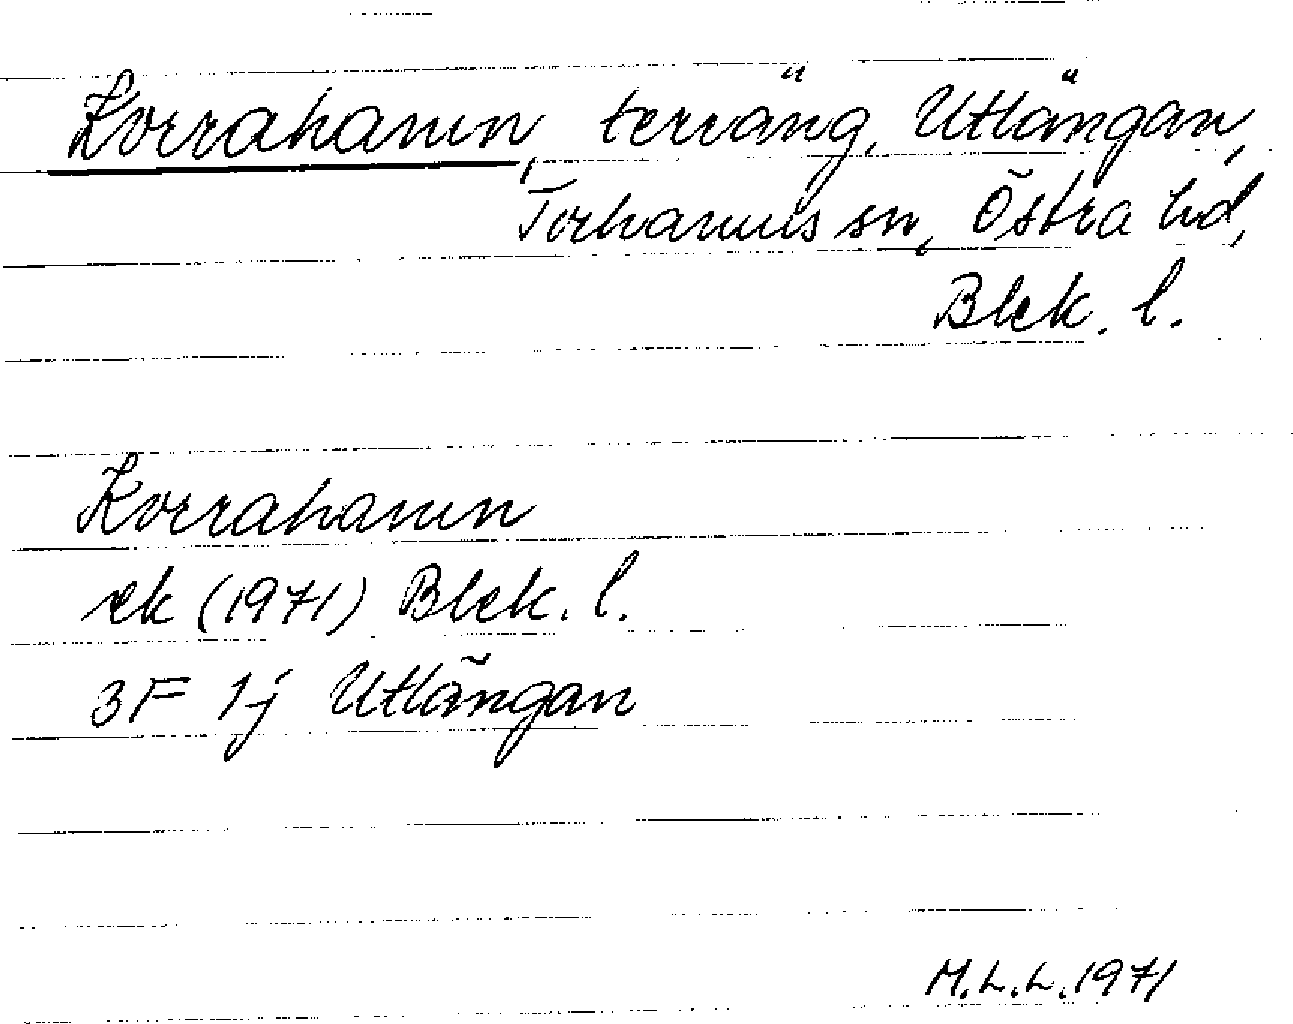 Korrahamn, terräng, Utlängan,
Torhamns sn, Östra hd,
Blek. l.
Korrahamn
ek (1971) Blek. l.
3F 1j Utlängan
M.L.L. 1971